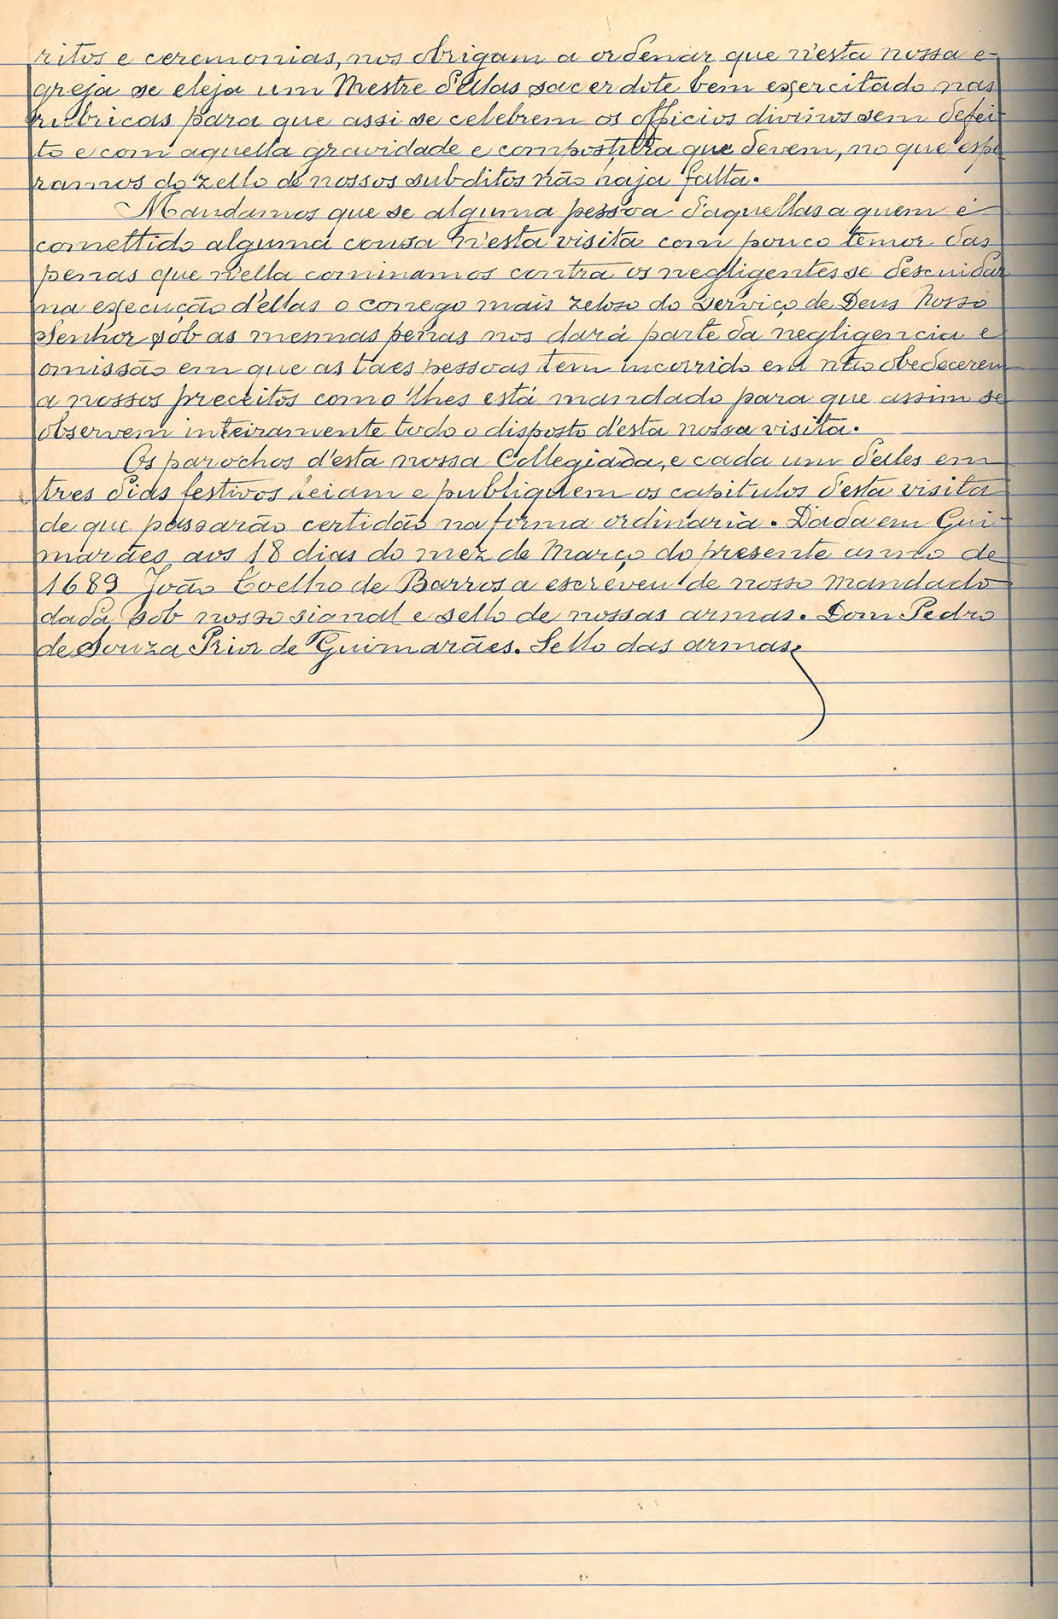 ritos e ceremonias, nos obrigam a ordenar que n'esta nossa e-
greja se eleja um Mestre d'ellas sacerdote bem exercitado nas
rubricas para que assi se celebrem os officios divinos sem defei-
to e com aquella gravidade e compostura que devem, no que espe
ramos do zello de nossos subditos não haja falta.
Mandamos que se alguma pessoa d'aquellas a quem é
comettido alguma cousa n'esta visita com pouco temor das
penas que n'ella cominamos contra os negligentes se descuidar
na execução d'ellas o conego mais zeloso do serviço de Deus Nosso
Senhor sób as mesmas penas nos dará parte da negligencia e
omissão em que as taes pessoas tem incorrido em não obedecerem
a nossos preceitos como lhes está mandado para que assim se
observem inteiramente todo o disposto d'esta nossa visita.
Os parochos d'esta nossa Collegiada, e cada um d'elles em
tres dias festivos leiam e publiquem os capitulos d'esta visita
de que passarão certidão na forma ordinaria. Dada em Gui-
marães, aos 18 dias do mez de Março do presente anno de
1689 João Coelho de Barros a escreveu de nosso mandado
dada sob nosso signal e sello de nossas armas. Dom Pedro
de Souza Prior de Guimarães. Sello das armas